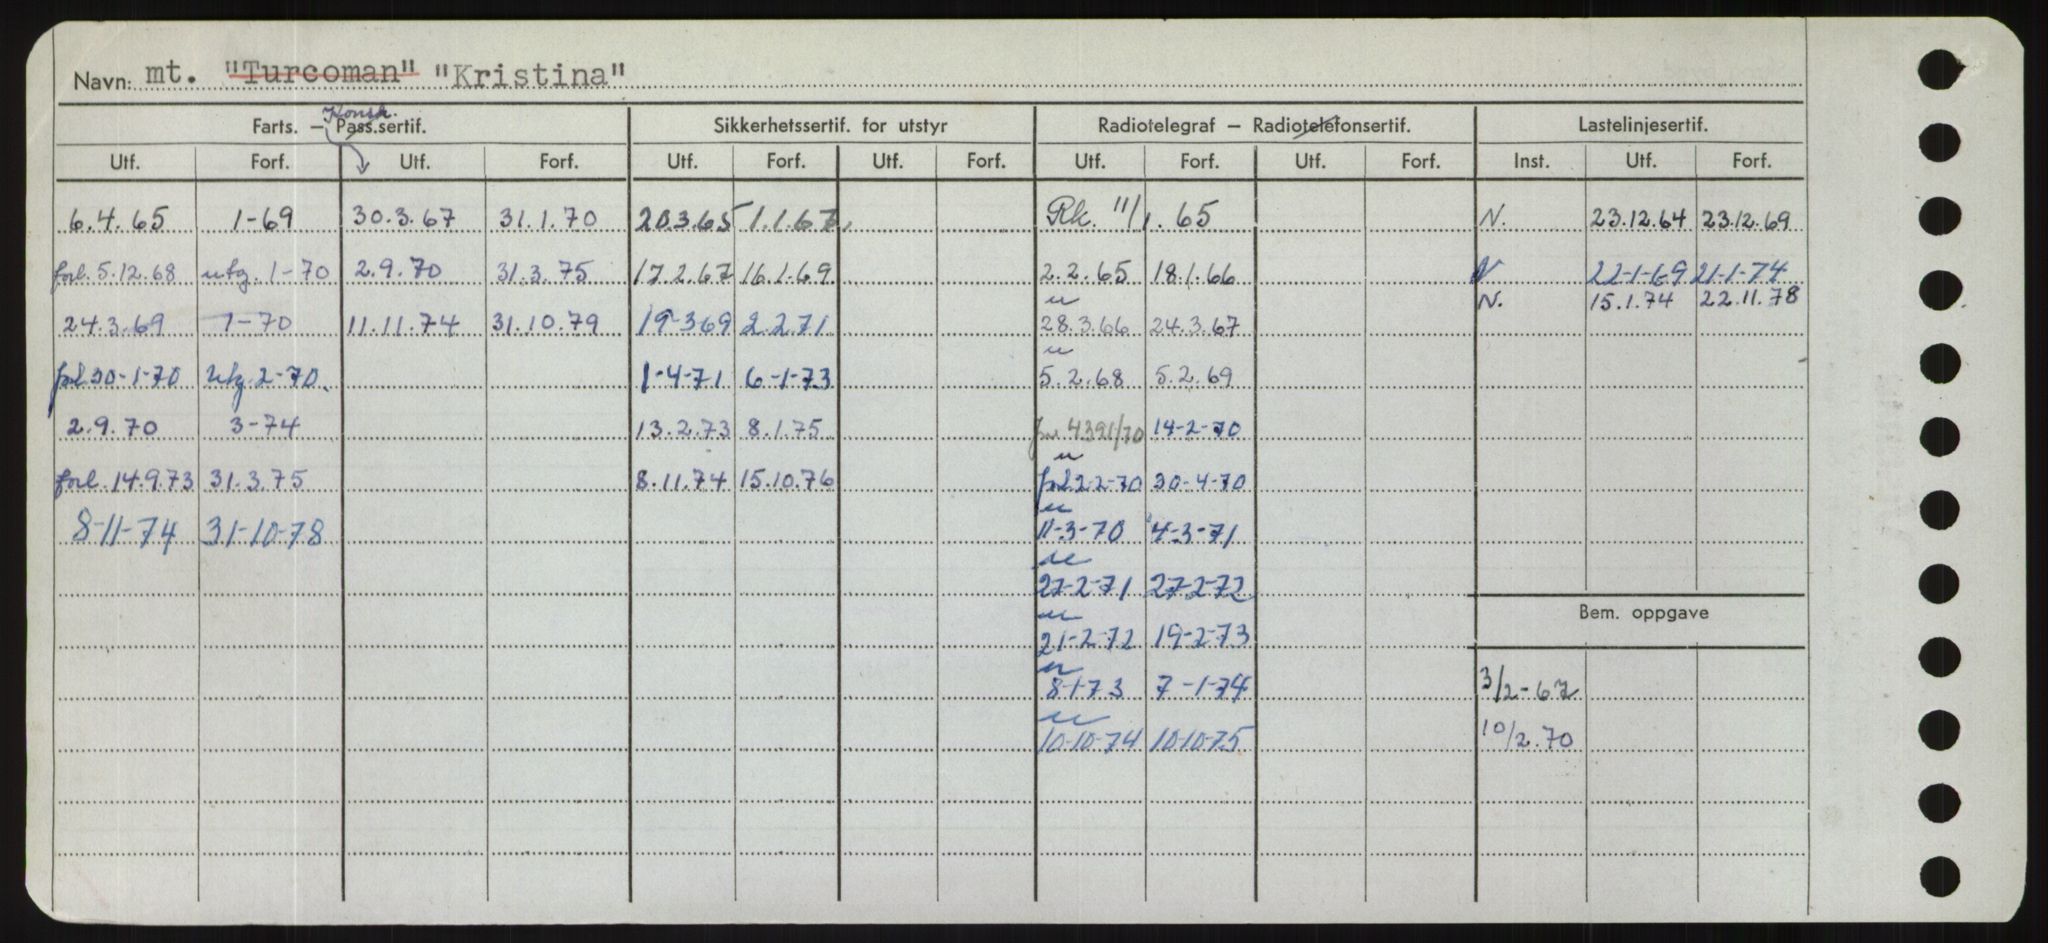 Navn: mt. "Turcoman" "Kristina"
Konstr.
Farts. – Pass.sertif. Sikkerhetssertif. for utstyr Radiotelegraf – Radiotelefonsertif. Lastelinjesertif.
Utf. Forf. Utf. Forf. Utf. Forf. Utf. Forf. Utf. Forf. Utf. Forf. Inst. Utf. Forf.
6.4.65 1-69 30.3.67 31.1.70 20.3.65 1.1.67. Rk. 11/1. 65 N. 23.12.64 23.12.69
forl. 5.12.68 utg. 1-70 2.9.70 31.3.75 17.2.67 16.1.69 2.2.65 18.1.66 N 22-1-69 21-1-74
u N. 15.1.74 22.11.78
24.3.69 1-70 11.11.74 31.10.79 19-3-69 2.2.71 28.3.66 24.3.67
u
forl. 30-1-70 utg. 2-70. 1-4-71 6-1-73 5.2.68 5.2.69
2.9.70 3-74 13.2.73 8.1.75 4391/70 14-2-70
u
forl. 14.9.73 31.3.75 8.11.74 15.10.76 forl 2-2-70 30-4-70
u
8-11-74 31-10-78 11-3-70 4-3-71
u
27-2-71 27-2-72
u
21-2-72 19-2-73
Bem. oppgave
u
8-1-73 7-1-74 3/2-67
u
10-10-74 10-10-75 10/2.70